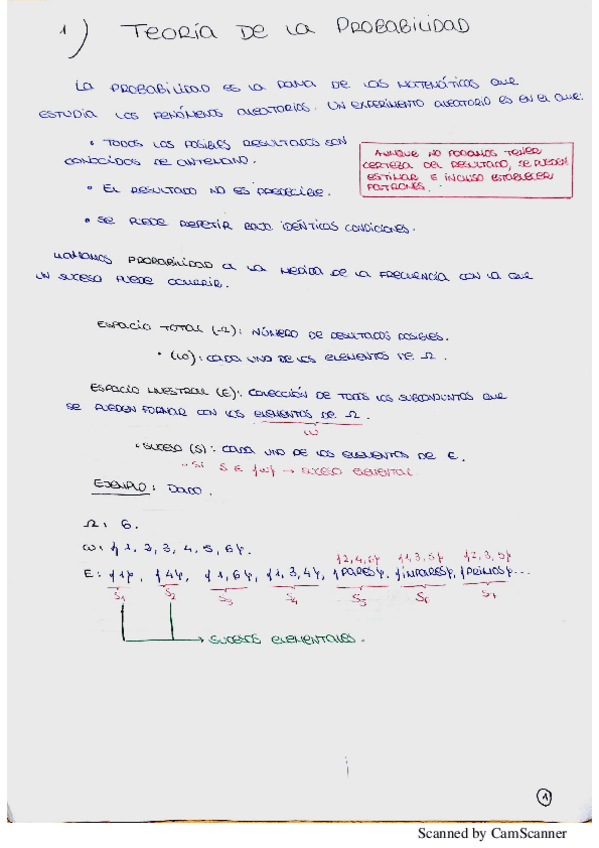 1) TEORÍA DE LA PROBABILIDAD
LA PROBABILIDAD ES LA RAMA DE LAS MATEMÁTICAS QUE
ESTUDIA LOS FENÓMENOS ALEATORIOS. UN EXPERIMENTO ALEATORIO ES EN EL QUE:
• TODOS LOS POSIBLES RESULTADOS SON
CONOCIDOS DE ANTEMANO.
AUNQUE NO PODAMOS TENER
CERTEZA DEL RESULTADO, SE PUEDEN
ESTIMAR E INCLUSO ESTABLECER
PATRONES.
• EL RESULTADO NO ES PREDECIBLE.
• SE PUEDE REPETIR BAJO IDÉNTICAS CONDICIONES.
LLAMAMOS PROBABILIDAD A LA MEDIDA DE LA FRECUENCIA CON LA QUE
UN SUCESO PUEDE OCURRIR.
ESPACIO TOTAL (Ω): NÚMERO DE RESULTADOS POSIBLES.
• (ω): CADA UNO DE LOS ELEMENTOS DE Ω.
ESPACIO MUESTRAL (E): COLECCIÓN DE TODOS LOS SUBCONJUNTOS QUE
SE PUEDEN FORMAR CON LOS ELEMENTOS DE Ω.
ω
• SUCESO (S): CADA UNO DE LOS ELEMENTOS DE E.
• SI S ∈ {ω} → SUCESO ELEMENTAL
EJEMPLO: DADO.
Ω: 6.
ω: {1, 2, 3, 4, 5, 6}.
{2,4,6} {1,3,5} {2,3,5}
E: {1}, {4}, {1,6}, {1,3,4}, {PARES}, {IMPARES}, {PRIMOS}...
S1 S2 S3 S4 S5 S6 S7
SUCESOS ELEMENTALES.
1
Scanned by CamScanner